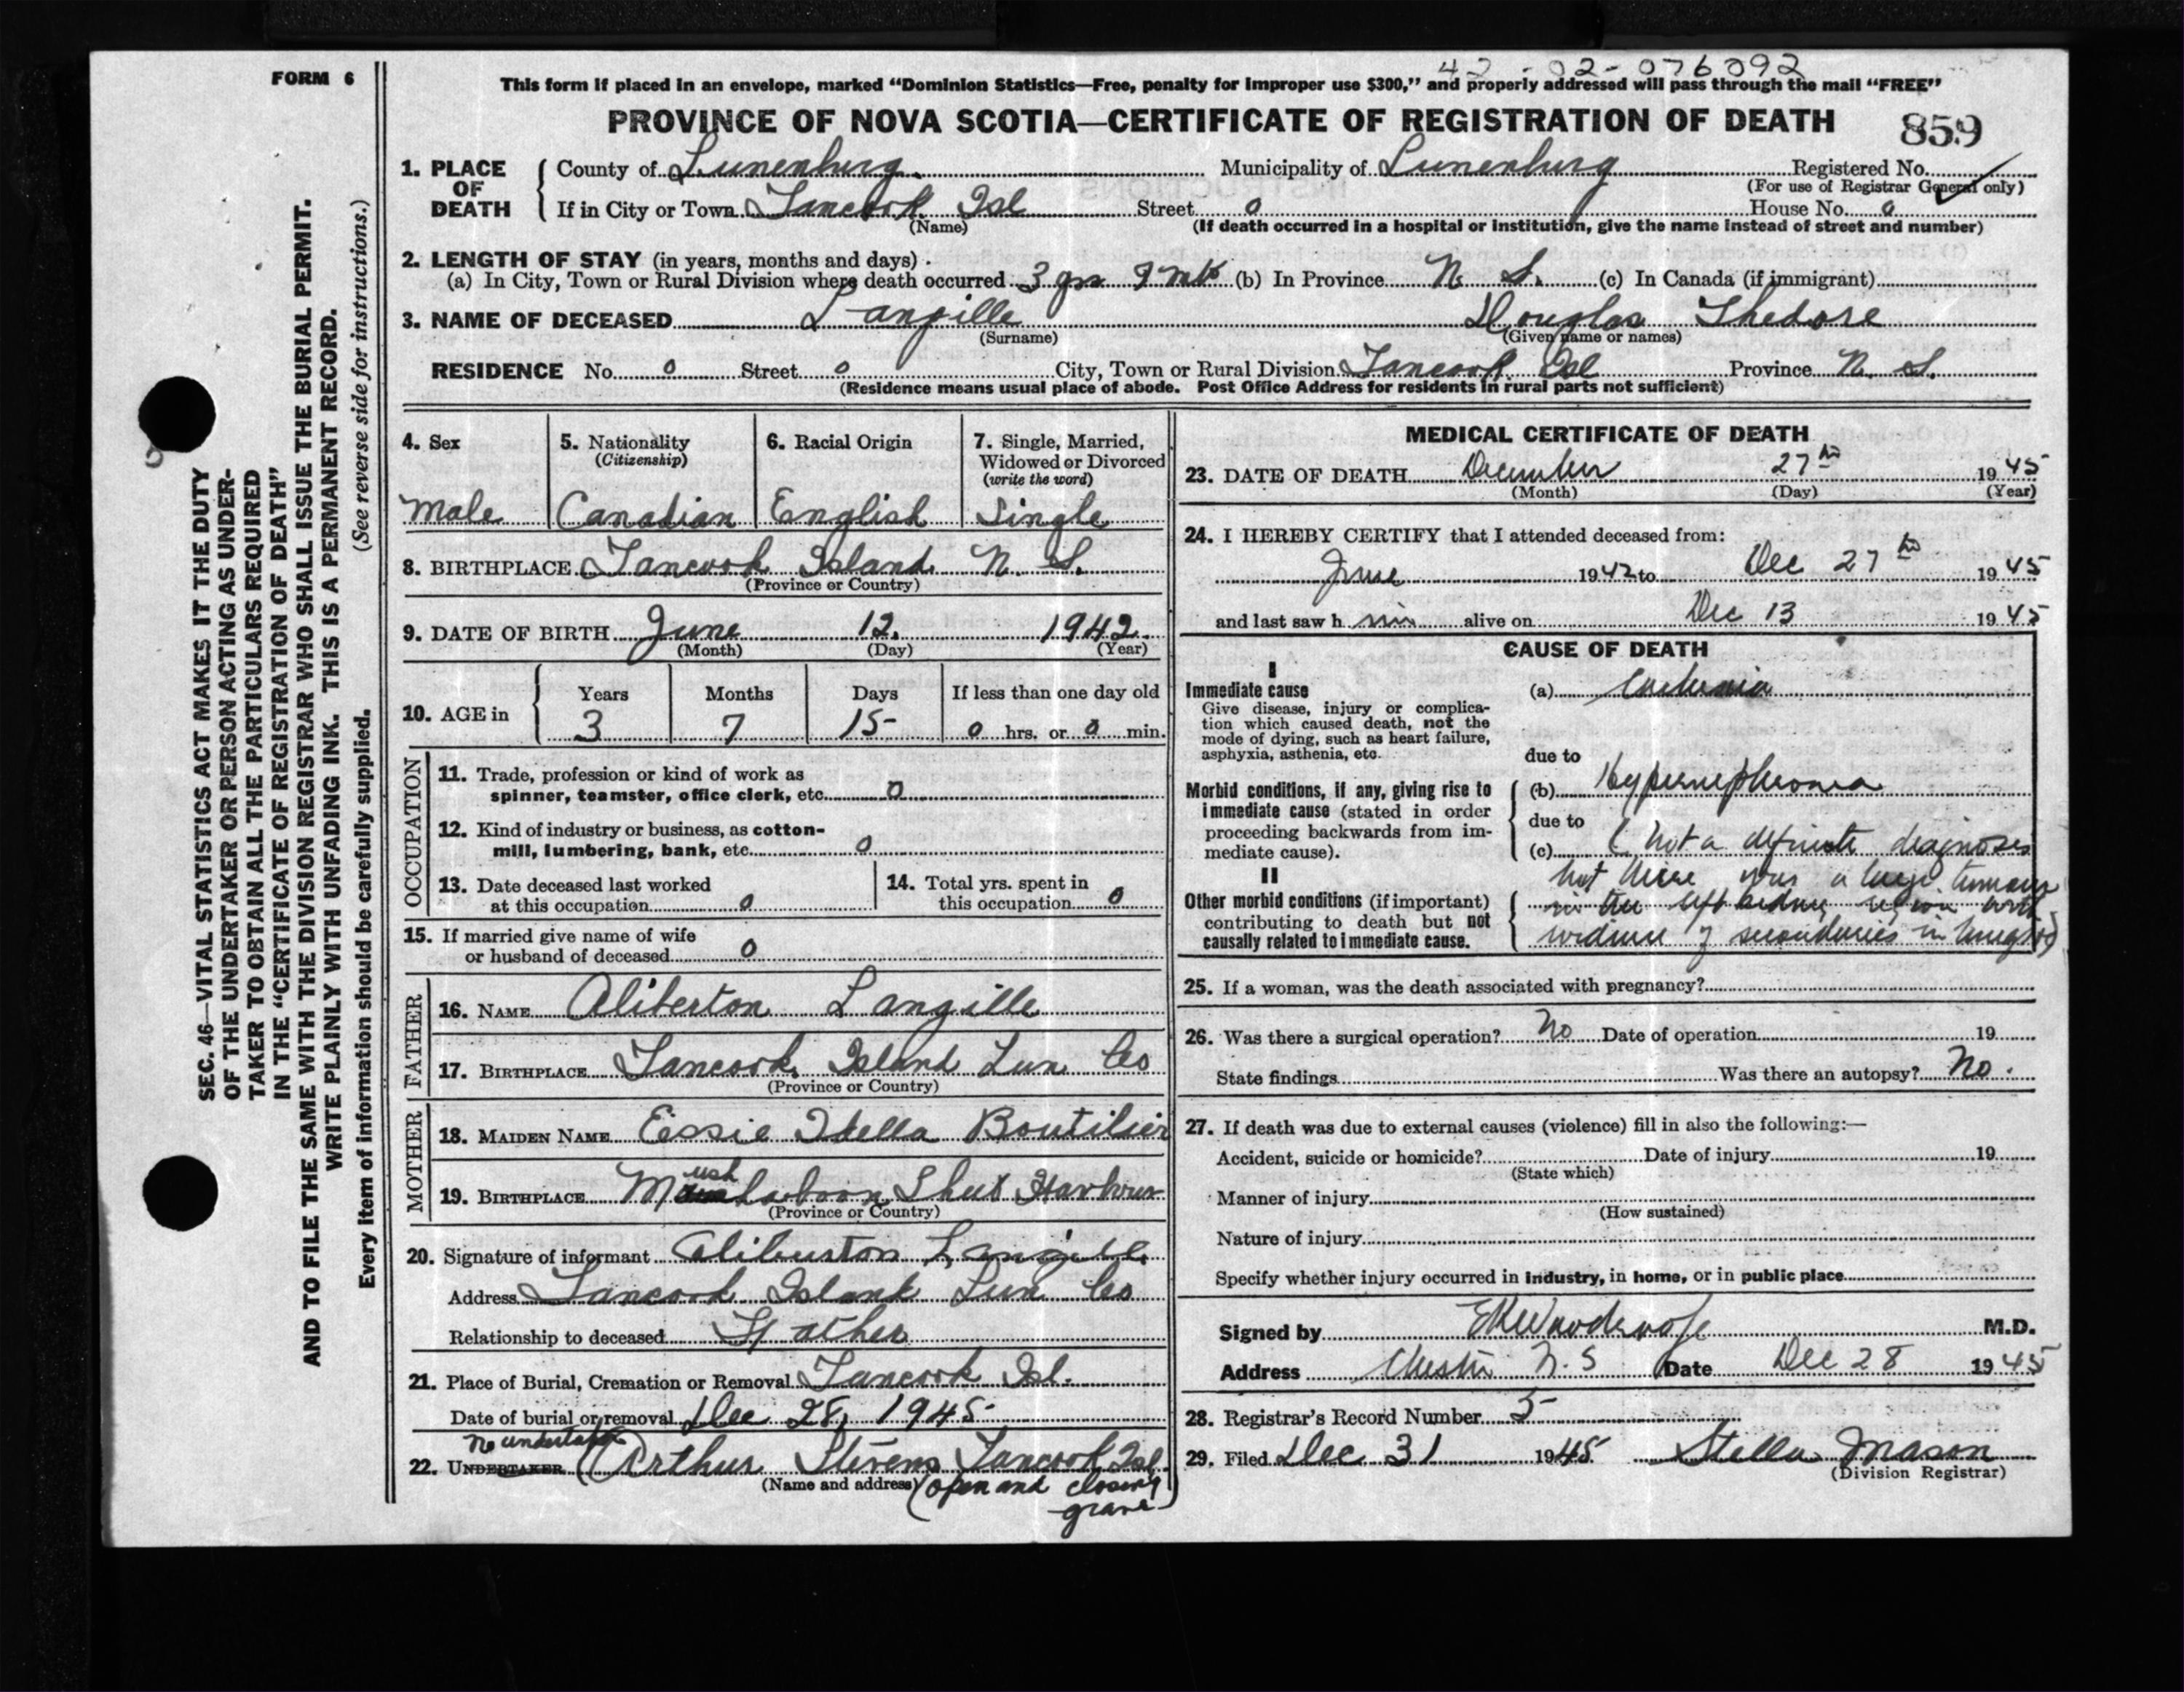 FORM 6
42-02-076092
This form if placed in an envelope, marked “Dominion Statistics—Free, penalty for improper use $300,” and properly addressed will pass through the mail “FREE”
PROVINCE OF NOVA SCOTIA—CERTIFICATE OF REGISTRATION OF DEATH 859
1. PLACE OF DEATH
County of Lunenburg. Municipality of Lunenburg Registered No.
(For use of Registrar General only)
If in City or Town Tancook Isl Street 0 House No. 0
(Name) (If death occurred in a hospital or institution, give the name instead of street and number)
2. LENGTH OF STAY (in years, months and days)
(a) In City, Town or Rural Division where death occurred 3 yrs 7 mts (b) In Province N. S. (c) In Canada (if immigrant)
3. NAME OF DECEASED Langille Douglas Thedore
(Surname) (Given name or names)
RESIDENCE No. 0 Street 0 City, Town or Rural Division Tancook Isl Province N. S.
(Residence means usual place of abode. Post Office Address for residents in rural parts not sufficient)
4. Sex
Male
5. Nationality
(Citizenship)
Canadian
6. Racial Origin
English
7. Single, Married,
Widowed or Divorced
(write the word)
Single
8. BIRTHPLACE Tancook Island N. S.
(Province or Country)
9. DATE OF BIRTH June 12. 1942.
(Month) (Day) (Year)
10. AGE in
Years Months Days If less than one day old
3 7 15 0 hrs. or 0 min.
OCCUPATION
11. Trade, profession or kind of work as
spinner, teamster, office clerk, etc. 0
12. Kind of industry or business, as cotton-
mill, lumbering, bank, etc. 0
13. Date deceased last worked
at this occupation 0
14. Total yrs. spent in
this occupation 0
15. If married give name of wife
or husband of deceased 0
FATHER
16. NAME Aliberton Langille
17. BIRTHPLACE Tancook Island Lun Co
(Province or Country)
MOTHER
18. MAIDEN NAME Essie Idella Boutilier
19. BIRTHPLACE Mushaboon Shut Harbour
(Province or Country)
20. Signature of informant Aliburton Langille
Address Tancook Island Lun Co
Relationship to deceased Father
21. Place of Burial, Cremation or Removal Tancook Isl.
Date of burial or removal Dec 28, 1945
no undertaker
22. UNDERTAKER (Arthur Stevens Tancook Isl.
(Name and address) (open and closing
grave)
MEDICAL CERTIFICATE OF DEATH
23. DATE OF DEATH December 27th 1945
(Month) (Day) (Year)
24. I HEREBY CERTIFY that I attended deceased from:
June 1942 to Dec 27th 1945
and last saw h im alive on Dec 13 1945
CAUSE OF DEATH
I
Immediate cause
Give disease, injury or complica-
tion which caused death, not the
mode of dying, such as heart failure,
asphyxia, asthenia, etc.
(a)
due to
Morbid conditions, if any, giving rise to
immediate cause (stated in order
proceeding backwards from im-
mediate cause).
(b) Hypernephroma
due to
(c) ( not a definite diagnoses
but there was a large tumour
II
Other morbid conditions (if important)
contributing to death but not
causally related to immediate cause.
in the left kidney region with
evidence of secondaries in lungs)
25. If a woman, was the death associated with pregnancy?
26. Was there a surgical operation? No Date of operation 19
State findings Was there an autopsy? No.
27. If death was due to external causes (violence) fill in also the following:—
Accident, suicide or homicide? Date of injury 19
(State which)
Manner of injury
(How sustained)
Nature of injury
Specify whether injury occurred in industry, in home, or in public place
Signed by M.D.
Address Chester N.S Date Dec 28 1945
28. Registrar's Record Number 5
29. Filed Dec 31 1945 Stella Mason
(Division Registrar)
SEC. 46—VITAL STATISTICS ACT MAKES IT THE DUTY
OF THE UNDERTAKER OR PERSON ACTING AS UNDER-
TAKER TO OBTAIN ALL THE PARTICULARS REQUIRED
IN THE “CERTIFICATE OF REGISTRATION OF DEATH”
AND TO FILE THE SAME WITH THE DIVISION REGISTRAR WHO SHALL ISSUE THE BURIAL PERMIT.
WRITE PLAINLY WITH UNFADING INK. THIS IS A PERMANENT RECORD.
Every item of information should be carefully supplied. (See reverse side for instructions.)